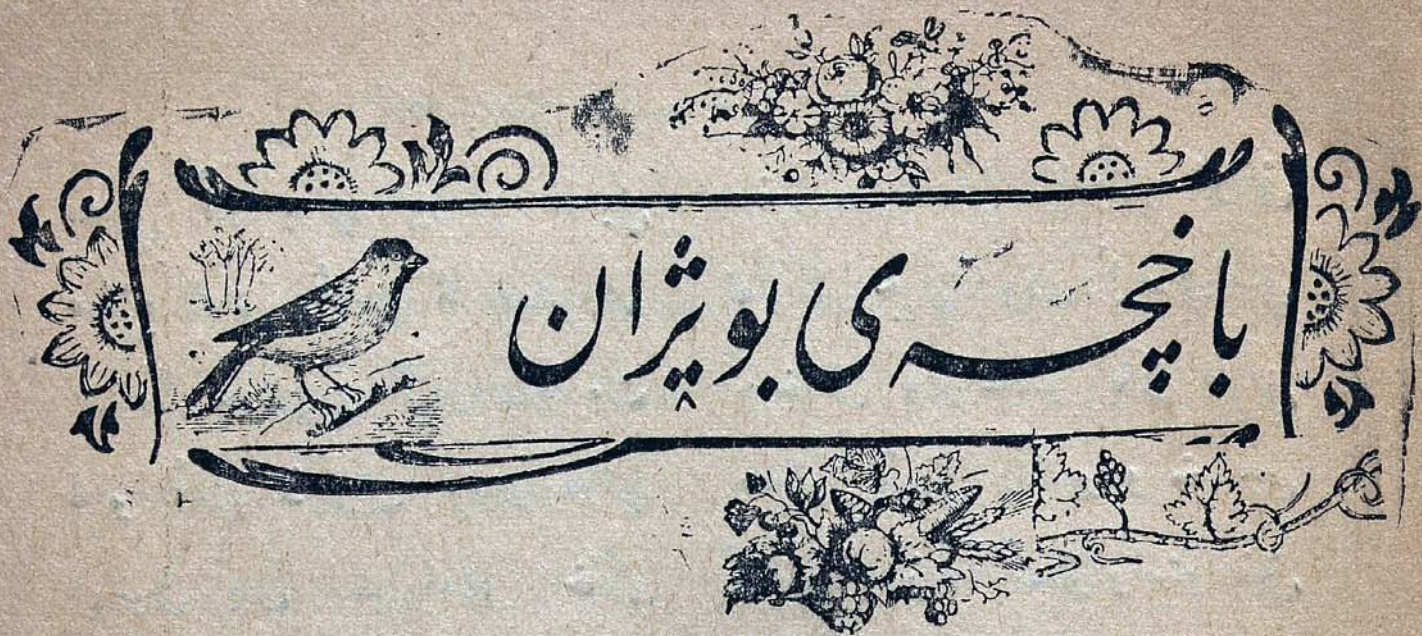 باخچەی بوێژان